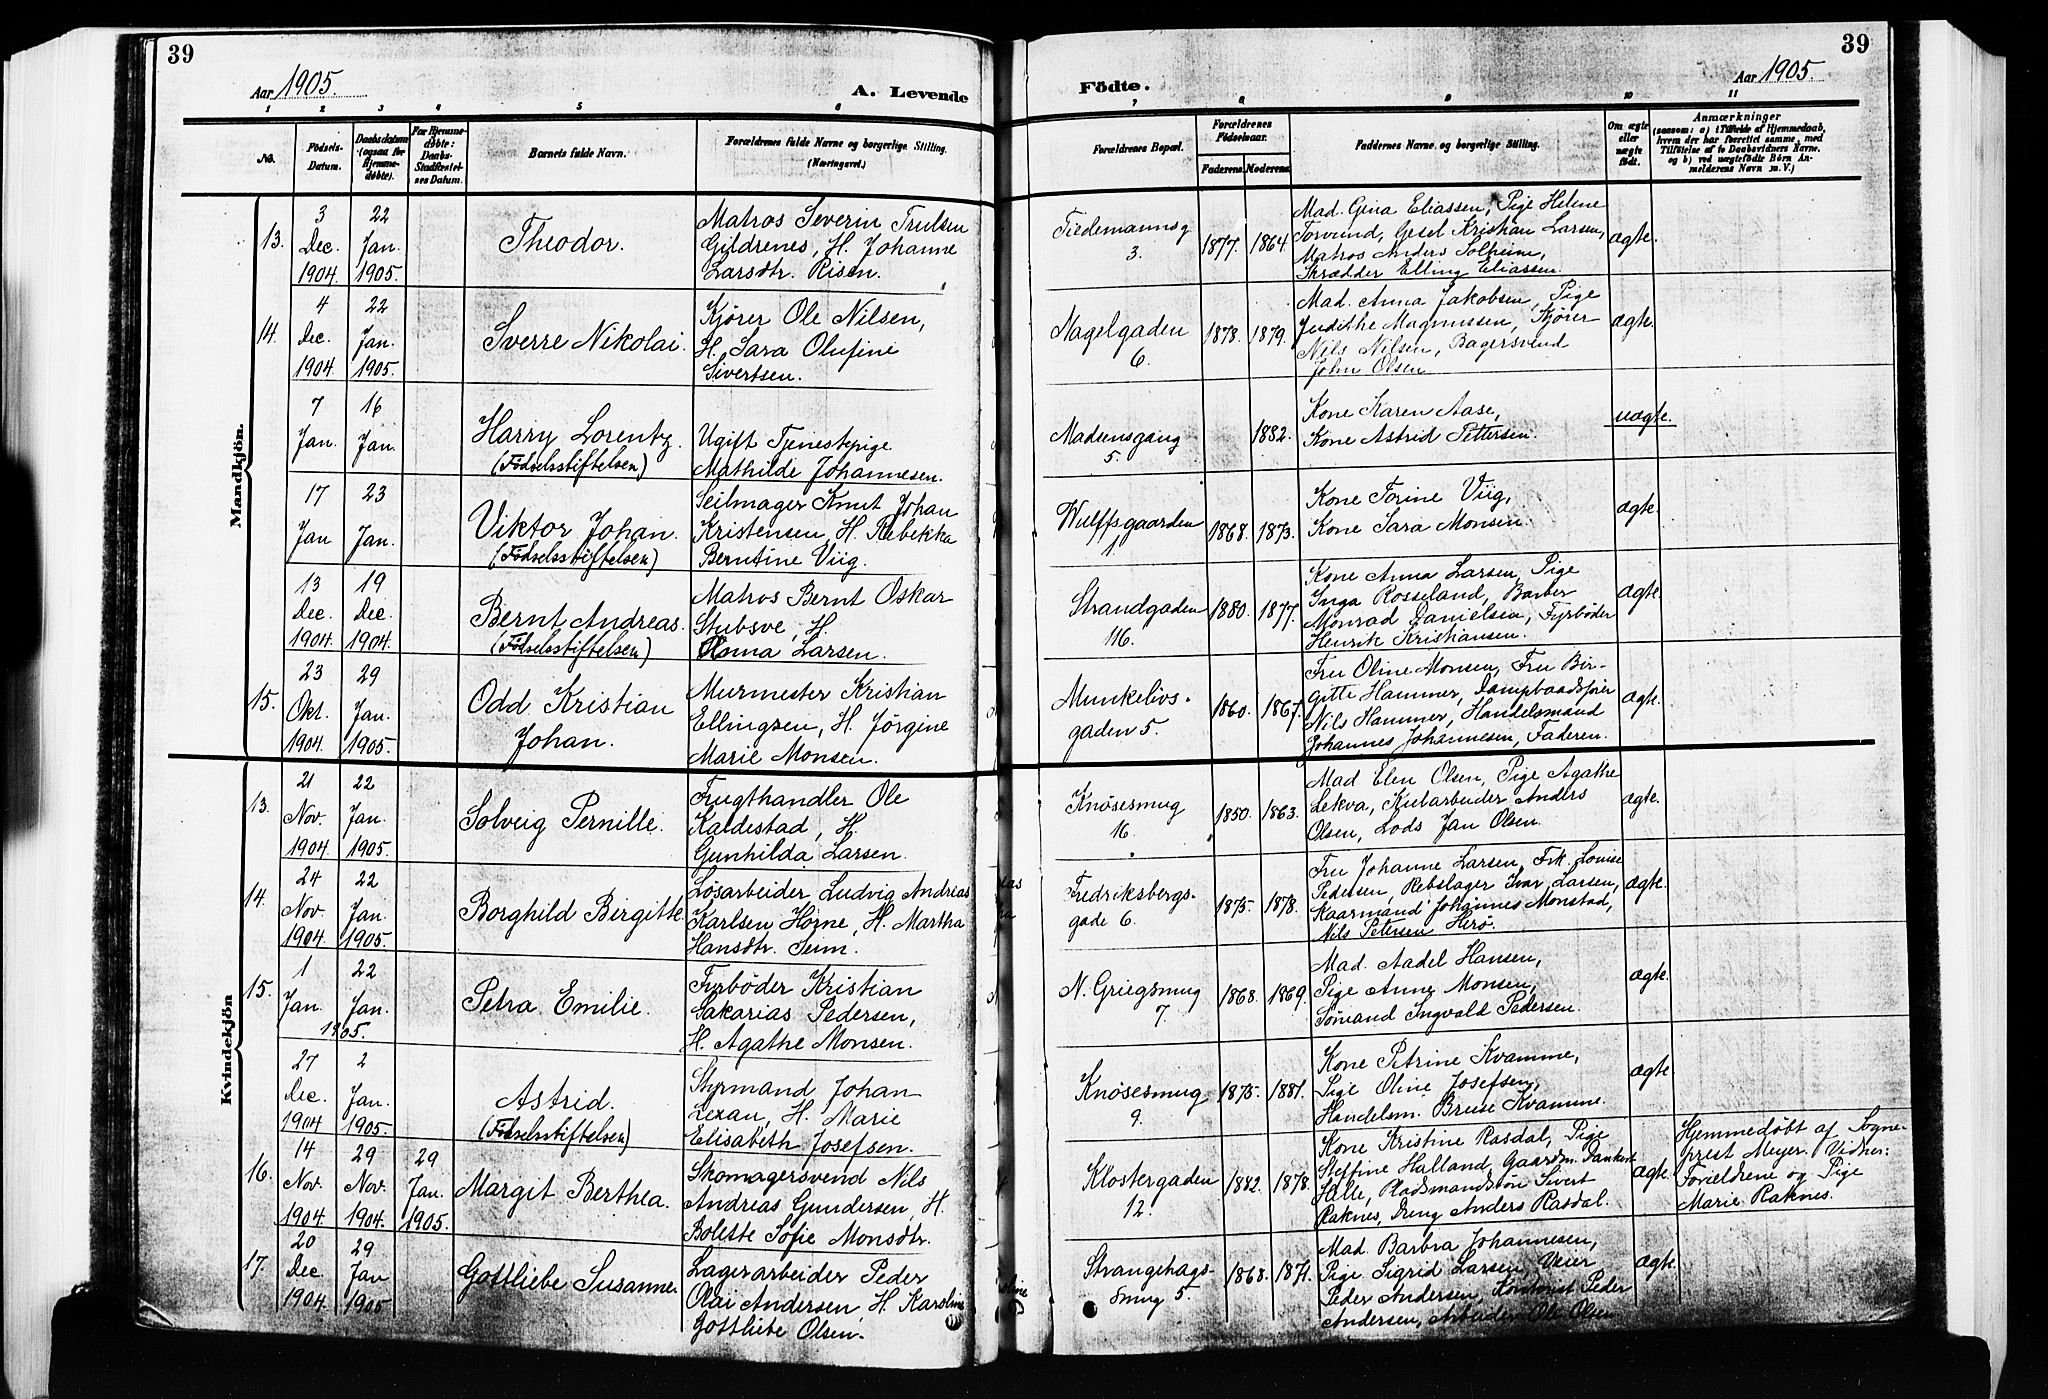 39
39
Aar 1905.
A. Levende
Födte.
Aar 1905.
1 2 3 4 5 6 7 8 9 10 11
No.
Födsels-
Datum.
Daabsdatum
(ogsaa for
Hjemme-
döbte).
For Hjemme-
döbte:
Daabs-
Stadfæstel-
ses Datum.
Barnets fulde Navn.
Forældrenes fulde Navne og borgerlige Stilling.
(Næringsvei.)
Forældrenes Bopæl.
Forældrenes
Födselsaar.
Faderens.
Moderens.
Faddernes Navne og borgerlige Stilling.
Om ægte
eller
uægte
födt.
Anmærkninger
(saasom: a) i Tilfælde af Hjemmedaab,
hvem der har forrettet samme, med
Tilföielse af to Daabsvidners Navne.
og b) ved uægtefödte Börn An-
melderens Navn m. V.)
Mandkjön.
13.
3
Dec.
1904.
22
Jan.
1905.
Theodor.
Matros Severin Trulsen
Gildrenes, H. Johanne
Larsdtr. Risen.
Tiedemannsg
3.
1877.
1864.
Mad. Gina Eliassen, Pige Helene
Torvund, Gesel Kristian Larsen,
Matros Anders Solheim,
Skrædder Elling Eliassen.
ægte.
14.
4
Dec.
1904
22
Jan.
1905.
Sverre Nikolai.
Kjører Ole Nilsen,
H. Sara Olufine
Sivertsen.
Nagelgaden
6.
1878.
1879.
Mad. Anna Jakobsen, Pige
Judithe Magnussen, Kjører
Nils Nilsen, Bagersvend
John Olsen.
ægte.
7
Jan.
16
Jan.
Harry Lorentz.
(Fødselsstiftelsen)
Ugift Tjenestepige
Mathilde Johannesen.
Madamsgang
5.
1882.
Kone Karen Aase,
Kone Astrid Pettersen.
uægte.
17
Jan
23
Jan.
Viktor Johan.
(Fødselsstiftelsen)
Seilmager Knut Johan
Kristensen, H. Rebekka
Berntine Viig.
Wulffsgaarden
1
1868.
1873.
Kone Torine Viig,
Kone Sara Monsen.
ægte.
13
Dec.
1904
19
Dec.
1904.
Bernt Andreas.
(Fødselsstiftelsen)
Matros Bernt Oskar
Stubsve, H.
Anna Larsen.
Strandgaden
116.
1880.
1877.
Kone Anna Larsen, Pige
Inga Rosseland, Barber
Monrad Danielsen, Fyrbøder
Henrik Kristiansen.
ægte.
15.
23
Okt.
1904
29
Jan.
1905.
Odd Kristian
Johan.
Murmester Kristian
Ellingsen, H. Jørgine
Marie Monsen.
Munkelivs-
gaden 5.
1860.
1867.
Fru Oline Monsen, Fru Bir-
gitte Hammer, Dampbaadsfører
Nils Hammer, Handelsmand
Johannes Johannesen, Faderen.
ægte.
Kvindekjön
13.
21
Nov.
1904
22
Jan.
1905.
Solveig Pernille.
Frugthandler Ole
Kaldestad, H.
Gunhilda Larsen.
Knøsesmug
16.
1850.
1863.
Mad Elen Olsen, Pige Agathe
Lekva, Kularbeider Anders
Olsen, Lods Jan Olsen.
ægte.
14.
24
Nov.
1904
22
Jan.
1905.
Borghild Birgitte.
Løsarbeider Ludvig Andreas
Karlsen Horne, H. Martha
Hansdtr. Seim.
Fredriksbergs-
gade 6.
1875.
1878.
Fru Johanne Larsen, Frk. Louise
Pedersen, Rebslager Ivar Larsen,
Kaarmand Johannes Monstad,
Nils Petersen Herø.
ægte.
15.
1
Jan.
22
Jan.
1905.
Petra Emilie.
Fyrbøder Kristian
Sakarias Pedersen,
H. Agathe Monsen.
N. Griegsmug
7.
1868.
1869.
Mad. Aadel Hansen,
Pige Anne Monsen,
Sømand Ingvald Pedersen.
ægte.
27
Dec.
1904
2
Jan.
1905.
Astrid.
(Fødselsstiftelsen)
Styrmand Johan
Lexau, H. Marie
Elisabeth Josefsen.
Knøsesmug
9.
1875.
1881.
Kone Petrine Kvamme,
Pige Oline Josefsen,
Handelsm. Bruse Kvamme.
ægte
16.
14
Nov.
1904
29
Nov.
1904.
29
Jan.
1905.
Margit Berthea.
Skomagersvend Nils
Andreas Gundersen, H.
Bolette Sofie Monsdtr.
Klostergaden
12.
1882.
1878.
Kone Kristine Rasdal, Pige
Steffine Halland, Gaardm. Dankert
Hille, Pladsmandssøn Sivert
Raknes, Dreng Anders Rasdal.
ægte.
Hjemmedøbt af Sogne-
prest Meyer. Vidner:
Forældrene og Pige
Marie Raknes.
17.
20
Dec.
1904.
29
Jan
1905
Gottliebe Susanne.
Lagerarbeider Peder
Olai Andersen, H. Karoline
Gottliebe Olsen.
Strangehags-
smug 5.
1868.
1871.
Mad. Barbra Johannesen,
Pige Sigrid Larsen, Veier
Peder Andersen, Kontorist Peder
Andersen, Arbeider Ole Olsen
ægte.